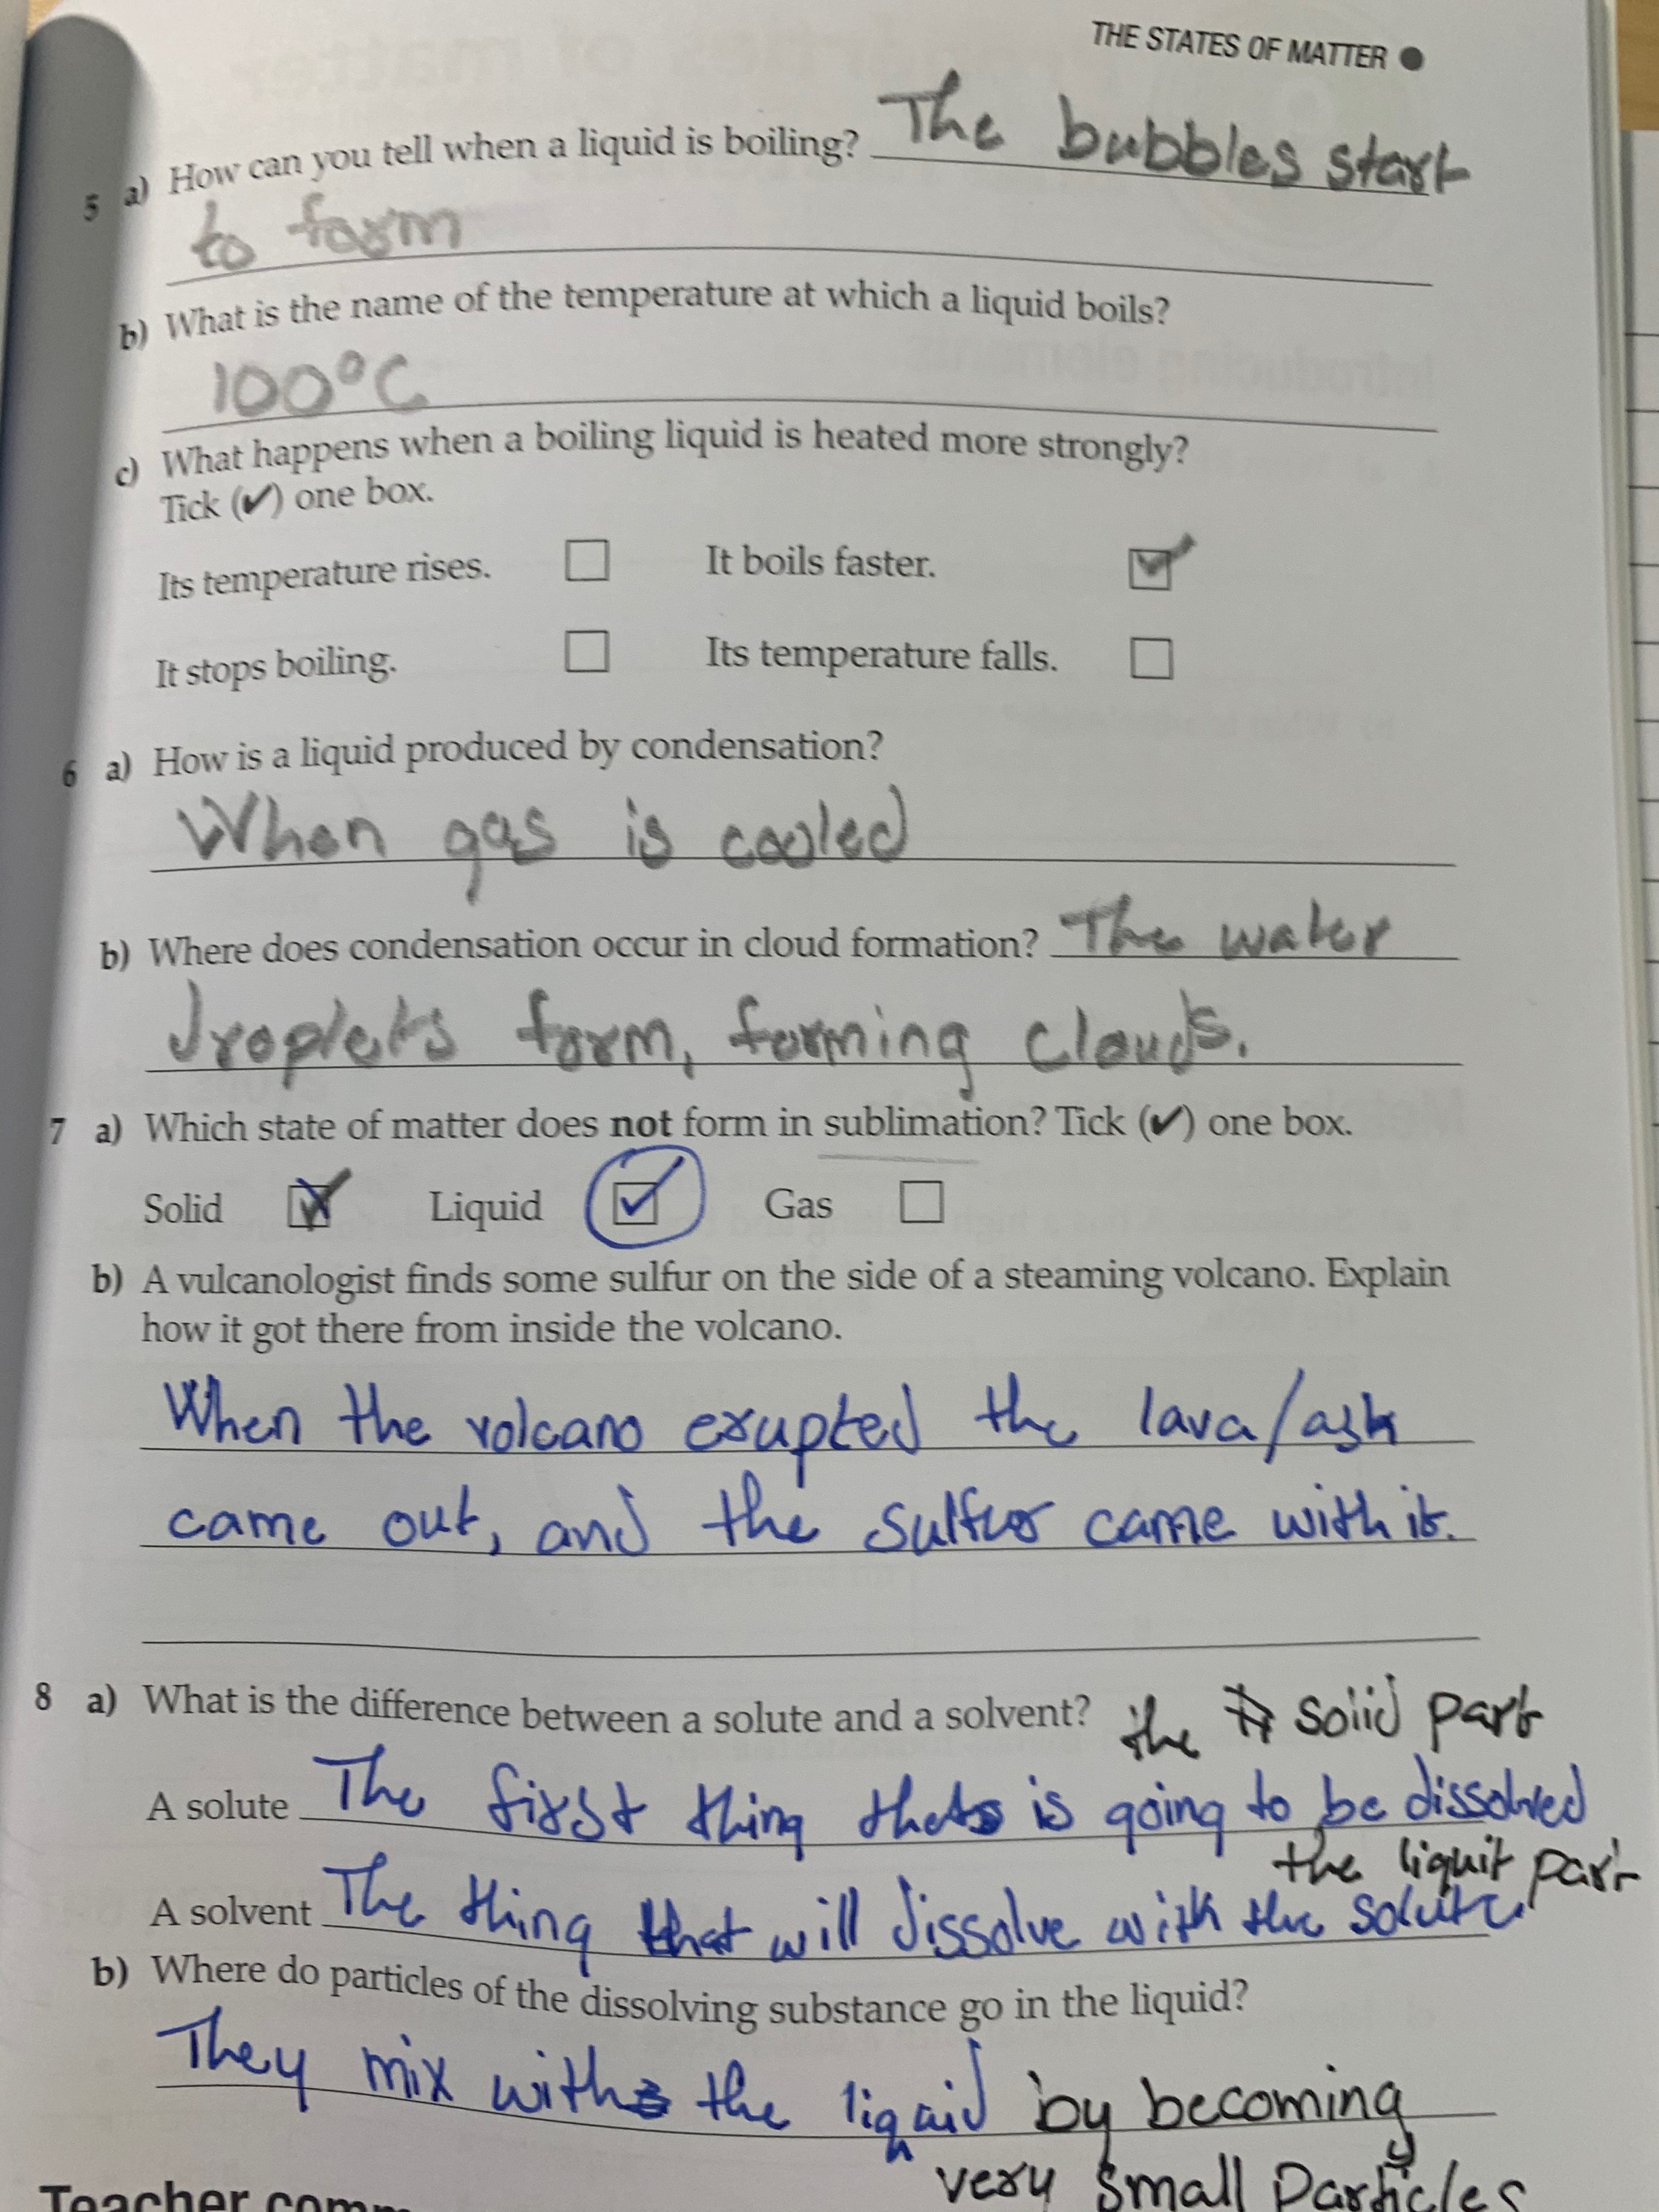 THE STATES OF MATTER ●
5 a) How can you tell when a liquid is boiling? The bubbles start
to form
b) What is the name of the temperature at which a liquid boils?
100°C
c) What happens when a boiling liquid is heated more strongly?
Tick (✔) one box.
Its temperature rises. ☐ It boils faster. ☑
It stops boiling. ☐ Its temperature falls. ☐
6 a) How is a liquid produced by condensation?
When gas is cooled
b) Where does condensation occur in cloud formation? The water
droplets form, forming clouds.
7 a) Which state of matter does not form in sublimation? Tick (✔) one box.
Solid ☒ Liquid ☑ Gas ☐
b) A vulcanologist finds some sulfur on the side of a steaming volcano. Explain
how it got there from inside the volcano.
When the volcano erupted the lava/ash
came out, and the sulfur came with it.
8 a) What is the difference between a solute and a solvent? the solid part
A solute The first thing that is going to be dissolved
the liquit part
A solvent The thing that will dissolve with the solute
b) Where do particles of the dissolving substance go in the liquid?
They mix with the liquid by becoming
very small Particles
Teacher comm